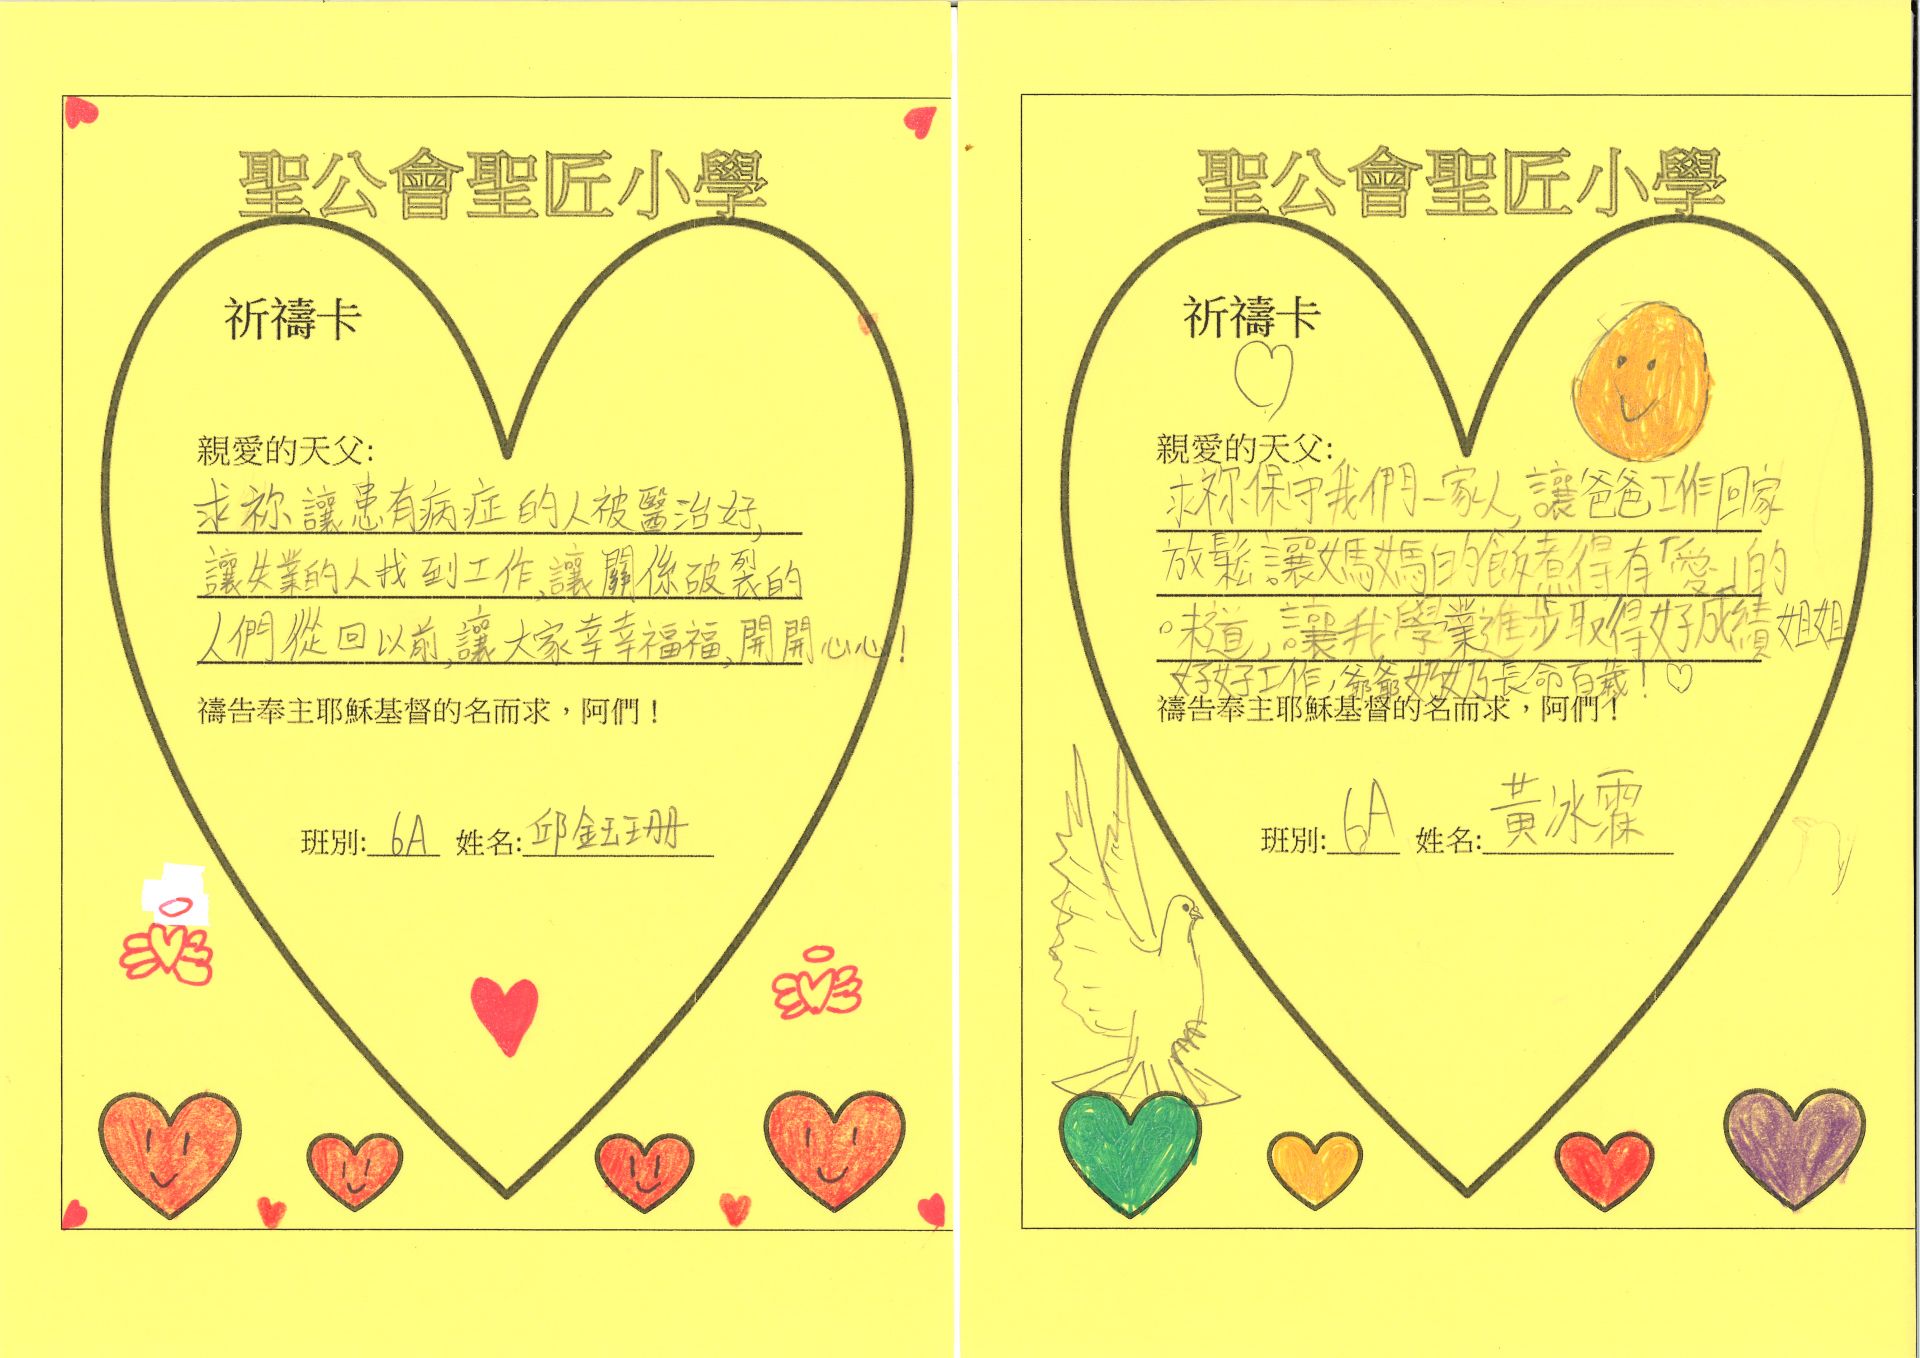 聖公會聖匠小學
祈禱卡
親愛的天父:
求祢讓患有病症的人被醫治好,
讓失業的人找到工作,讓關係破裂的
人們從回以前,讓大家幸幸福福,開開心心!
禱告奉主耶穌基督的名而求，阿們！
班別: 6A 姓名: 邱鈺珊
聖公會聖匠小學
祈禱卡
親愛的天父:
求祢保守我們一家人,讓爸爸工作回家
放鬆讓媽媽的飯煮得有「愛」的
味道,讓我學業進步取得好成績姐姐
好好工作,爺爺奶奶長命百歲!
禱告奉主耶穌基督的名而求，阿們！
班別: 6A 姓名: 黃冰霖